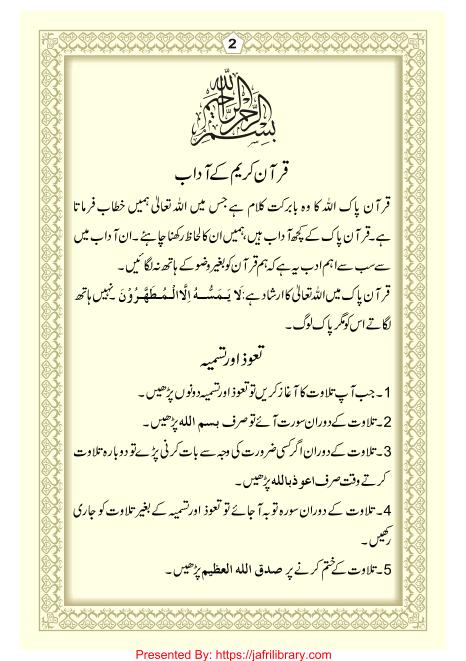 2
بسم الله الرحمن الرحيم
قرآن کریم کے آداب
قرآن پاک اللہ کا وہ بابرکت کلام ہے جس میں اللہ تعالیٰ ہمیں خطاب فرماتا
ہے۔ قرآن پاک کے کچھ آداب ہیں، ہمیں ان کا لحاظ رکھنا چاہئے۔ ان آداب میں
سے سب سے اہم ادب یہ ہے کہ ہم قرآن کو بغیر وضو کے ہاتھ نہ لگائیں۔
قرآن پاک میں اللہ تعالیٰ کا ارشاد ہے: لَا يَمَسُّهُ إِلَّا الْمُطَهَّرُوْنَ۔ نہیں ہاتھ
لگاتے اس کو مگر پاک لوگ۔
تعوذ اور تسمیہ
1۔ جب آپ تلاوت کا آغاز کریں تو تعوذ اور تسمیہ دونوں پڑھیں۔
2۔ تلاوت کے دوران سورت آئے تو صرف بسم الله پڑھیں۔
3۔ تلاوت کے دوران اگر کسی ضرورت کی وجہ سے بات کرنی پڑے تو دوبارہ تلاوت
کرتے وقت صرف اعوذ بالله پڑھیں۔
4۔ تلاوت کے دوران سورہ توبہ آ جائے تو تعوذ اور تسمیہ کے بغیر تلاوت کو جاری
رکھیں۔
5۔ تلاوت کے ختم کرنے پر صدق الله العظيم پڑھیں۔
Presented By: https://jafrilibrary.com